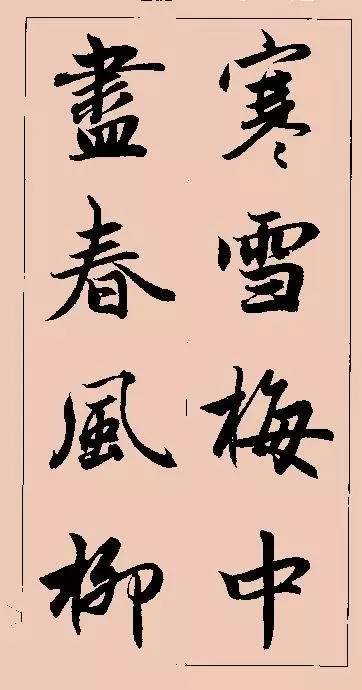 寒雪梅中
盡春風柳